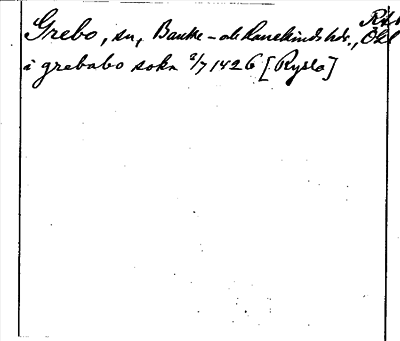 Grebo, sn, Banke- och Hanekinds hdr., Ögl
i grebabo sokn 2/7 1426 [Ryslo]